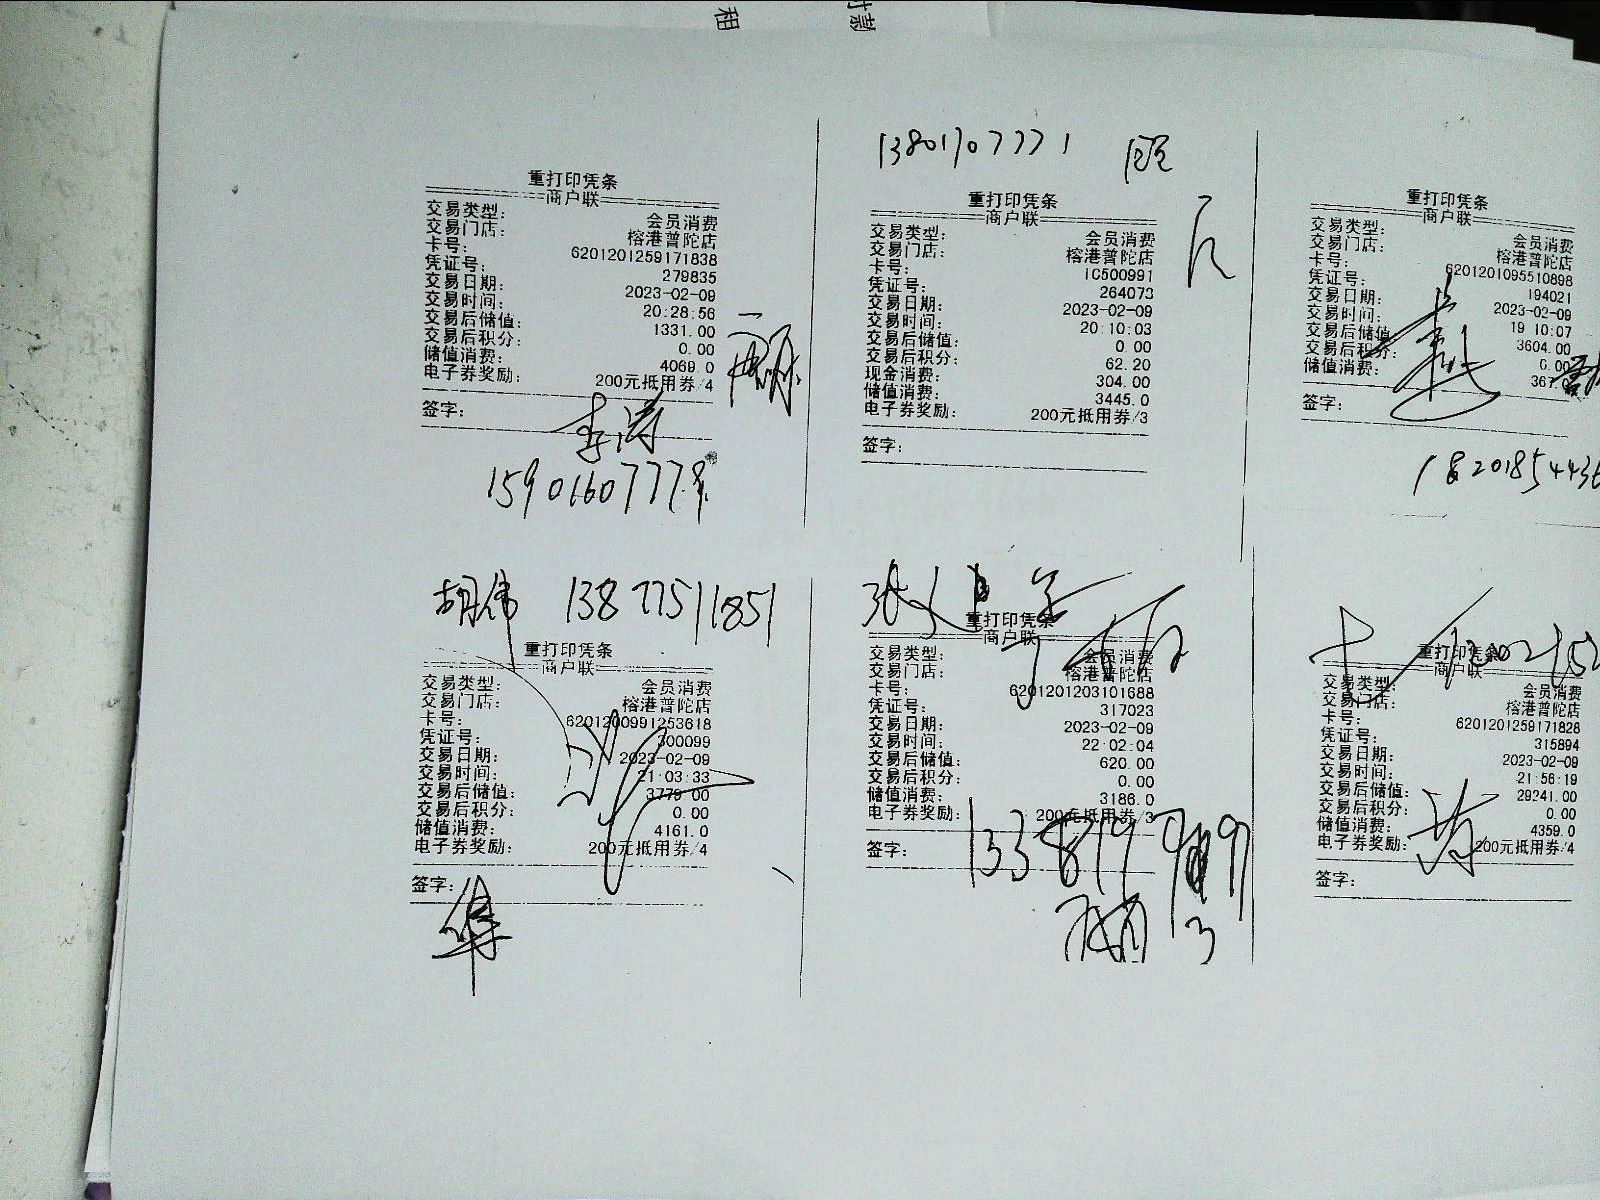 租
付款
13801707771
重打印凭条
商户联
交易类型: 会员消费
交易门店: 榕港普陀店
卡号: 6201201259171838
凭证号: 279835
交易日期: 2023-02-09
交易时间: 20:28:56
交易后储值: 1331.00
交易后积分: 0.00
储值消费: 4069.0
电子券奖励: 200元抵用券/4
签字: 李涛
重打印凭条
商户联
交易类型: 会员消费
交易门店: 榕港普陀店
卡号: 1C500991
凭证号: 264073
交易日期: 2023-02-09
交易时间: 20:10:03
交易后储值: 0.00
交易后积分: 62.20
现金消费: 304.00
储值消费: 3445.0
电子券奖励: 200元抵用券/3
签字:
重打印凭条
商户联
交易类型: 会员消费
交易门店: 榕港普陀店
卡号: 6201201095510898
凭证号: 194021
交易日期: 2023-02-09
交易时间: 19:10:07
交易后储值: 3604.00
交易后积分: 0.00
储值消费:
签字:
胡伟 13877511851
重打印凭条
商户联
交易类型: 会员消费
交易门店: 榕港普陀店
卡号: 6201200991253618
凭证号: 300099
交易日期: 2023-02-09
交易时间: 21:03:33
交易后储值: 3779.00
交易后积分: 0.00
储值消费: 4161.0
电子券奖励: 200元抵用券/4
签字:
重打印凭条
商户联
交易类型: 会员消费
交易门店: 榕港普陀店
卡号: 6201201203101688
凭证号: 317023
交易日期: 2023-02-09
交易时间: 22:02:04
交易后储值: 620.00
交易后积分: 0.00
储值消费: 3186.0
电子券奖励: 200元抵用券/3
签字:
重打印凭条
商户联
交易类型: 会员消费
交易门店: 榕港普陀店
卡号: 6201201259171828
凭证号: 315894
交易日期: 2023-02-09
交易时间: 21:56:19
交易后储值: 29241.00
交易后积分: 0.00
储值消费: 4359.0
电子券奖励: 200元抵用券/4
签字: